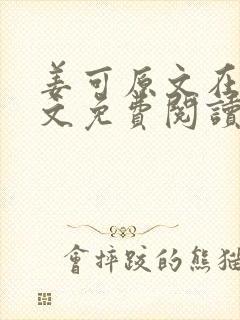 姜可原文在
文免費閱讀
會摔跤的熊貓